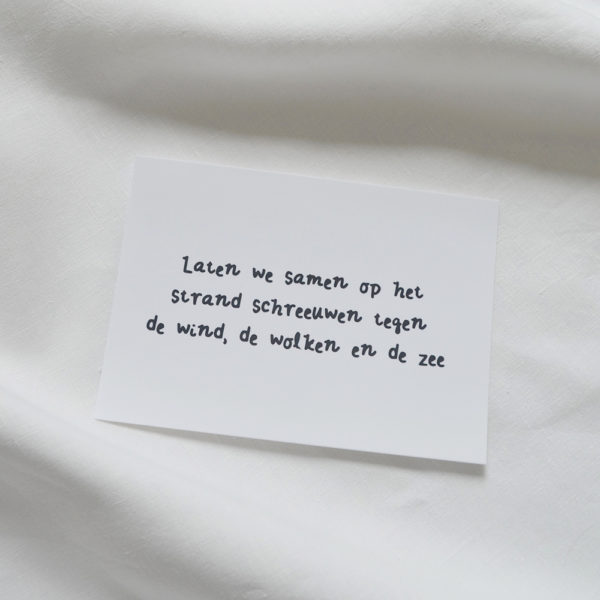 Laten we samen op het
strand schreeuwen tegen
de wind, de wolken en de zee